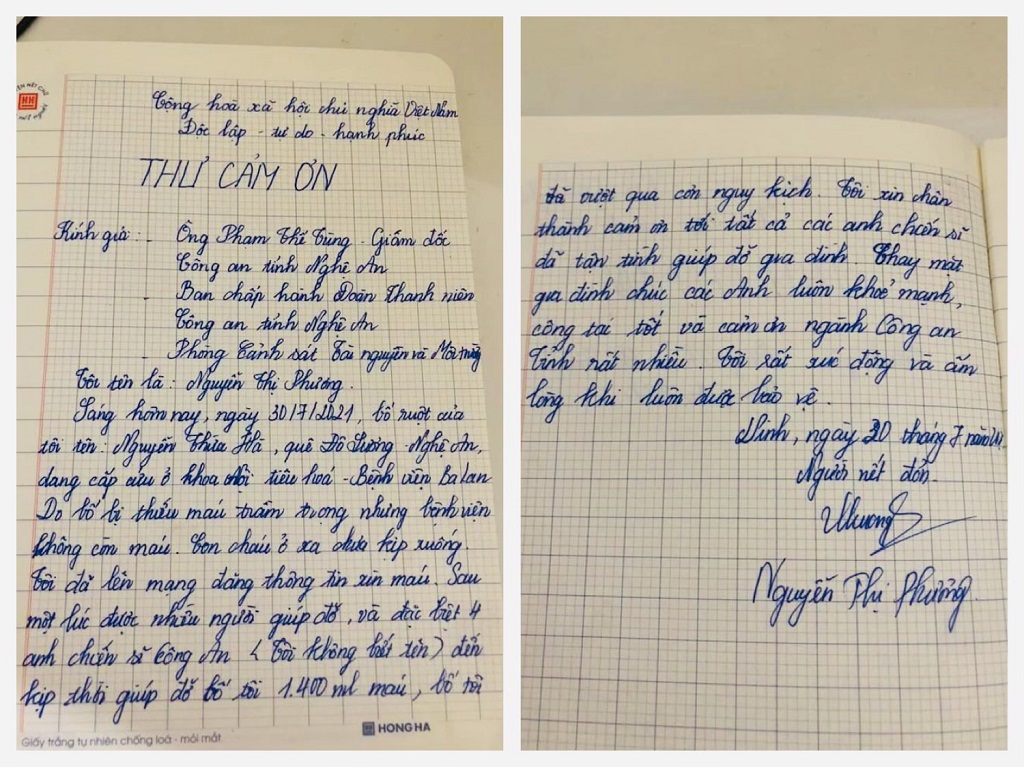 Cộng hoà xã hội chủ nghĩa Việt Nam
Độc lập - tự do - hạnh phúc
THƯ CẢM ƠN
Kính gửi: - Ông Phạm Thế Tùng - Giám đốc
Công an tỉnh Nghệ An
- Ban chấp hành Đoàn Thanh niên
Công an tỉnh Nghệ An
- Phòng Cảnh sát Tài nguyên và Môi trường
Tôi tên là: Nguyễn Thị Phương.
Sáng hôm nay, ngày 30/7/2021, bố ruột của
tôi tên: Nguyễn Thừa Hà, quê Đô Lương - Nghệ An,
đang cấp cứu ở khoa Nội tiêu hoá - Bệnh viện Ba Lan
Do bố bị thiếu máu trầm trọng nhưng bệnh viện
không còn máu. Con cháu ở xa chưa kịp xuống.
Tôi đã lên mạng đăng thông tin xin máu. Sau
một lúc được nhiều người giúp đỡ, và đặc biệt 4
anh chiến sĩ Công An (Tôi không biết tên) đến
kịp thời giúp đỡ bố tôi 1.400 ml máu, bố tôi
HONG HA
Giấy trắng tự nhiên chống loá - mỏi mắt
đã vượt qua cơn nguy kịch. Tôi xin chân
thành cảm ơn tới tất cả các anh chiến sĩ
đã tận tình giúp đỡ gia đình. Thay mặt
gia đình chúc các Anh luôn khoẻ mạnh,
công tác tốt và cảm ơn ngành Công an
Tỉnh rất nhiều. Tôi rất xúc động và ấm
lòng khi luôn được bảo vệ.
Vinh, ngày 30 tháng 7 năm
Người viết đơn.
Phương
Nguyễn Thị Phương.